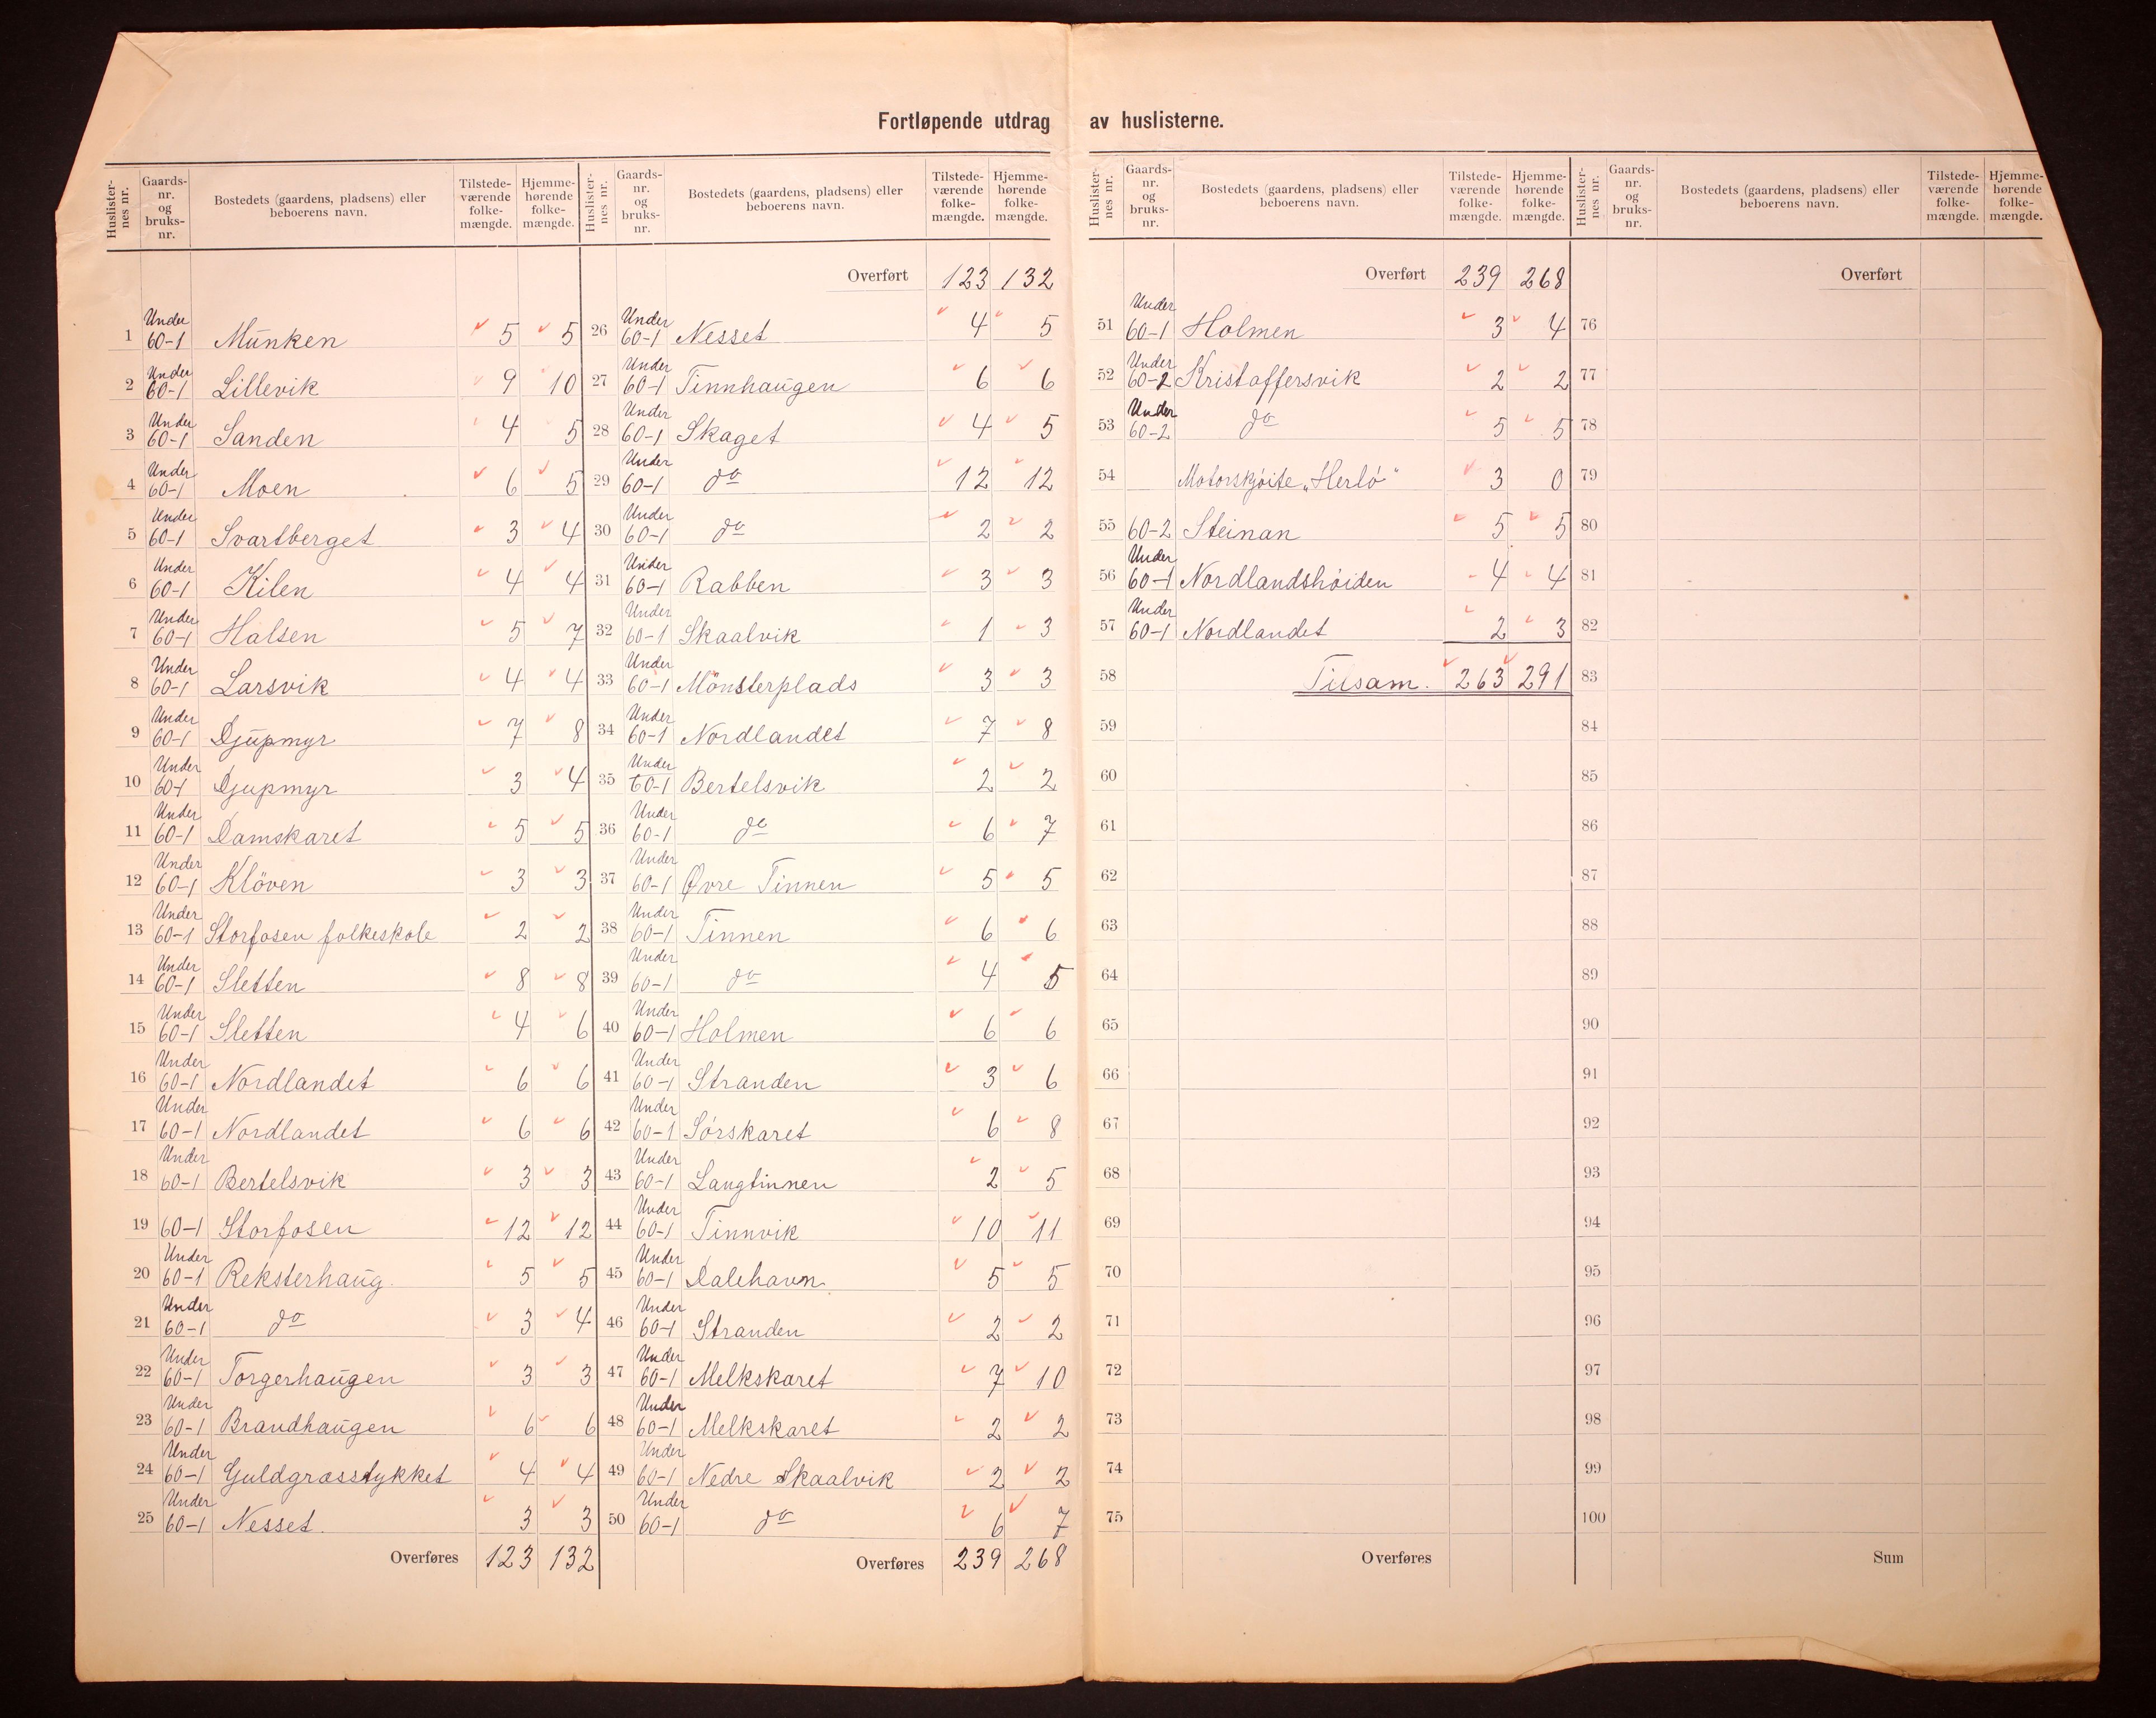 Fortløpende utdrag av huslisterne.
Huslister-nes nr. Gaards-nr. og bruks-nr. Bostedets (gaardens, pladsens) eller beboerens navn. Tilstede-værende folke-mængde. Hjemme-hørende folke-mængde.
1 Under 60-1 Munken 5 5
2 Under 60-1 Lillevik 9 10
3 Under 60-1 Sanden 4 5
4 Under 60-1 Moen 6 5
5 Under 60-1 Svartberget 3 4
6 Under 60-1 Kilen 4 4
7 Under 60-1 Halsen 5 7
8 Under 60-1 Larsvik 4 4
9 Under 60-1 Djupmyr 7 8
10 Under 60-1 Djupmyr 3 4
11 Under 60-1 Damskaret 5 5
12 Under 60-1 Klöven 3 3
13 Under 60-1 Storfosen folkeskole 2 2
14 Under 60-1 Sletten 8 8
15 Under 60-1 Sletten 4 6
16 Under 60-1 Nordlandet 6 6
17 Under 60-1 Nordlandet 6 6
18 Under 60-1 Bertelsvik 3 3
19 60-1 Storfosen 12 12
20 Under 60-1 Reksterhaug. 5 5
21 Under 60-1 do 3 4
22 Under 60-1 Torgerhaugen 3 3
23 Under 60-1 Brandhaugen 6 6
24 Under 60-1 Guldgrasstykket 4 4
25 Under 60-1 Nesset. 3 3
Overføres 123 132
Huslister-nes nr. Gaards-nr. og bruks-nr. Bostedets (gaardens, pladsens) eller beboerens navn. Tilstede-værende folke-mængde. Hjemme-hørende folke-mængde.
Overført 123 132
26 Under 60-1 Nesset 4 5
27 Under 60-1 Tinnhaugen 6 6
28 Under 60-1 Skaget 4 5
29 Under 60-1 do 12 12
30 Under 60-1 do 2 2
31 Under 60-1 Rabben 3 3
32 Under 60-1 Skaalvik 1 3
33 Under 60-1 Mönsterplads 3 3
34 Under 60-1 Nordlandet 7 8
35 Under 60-1 Bertelsvik 2 2
36 Under 60-1 do 6 7
37 Under 60-1 Øvre Tinnen 5 5
38 Under 60-1 Tinnen 6 6
39 Under 60-1 do 4 5
40 Under 60-1 Holmen 6 6
41 Under 60-1 Stranden 3 6
42 Under 60-1 Sørskaret 6 8
43 Under 60-1 Langtinnen 2 5
44 Under 60-1 Tinnvik 10 11
45 Under 60-1 Dalehavn 5 5
46 Under 60-1 Stranden 2 2
47 Under 60-1 Melkskaret 7 10
48 Under 60-1 Melkskaret 2 2
49 Under 60-1 Nedre Skaalvik 2 2
50 Under 60-1 do 6 7
Overføres 239 268
Huslister-nes nr. Gaards-nr. og bruks-nr. Bostedets (gaardens, pladsens) eller beboerens navn. Tilstede-værende folke-mængde. Hjemme-hørende folke-mængde.
Overført 239 268
51 Under 60-1 Holmen 3 4
52 Under 60-2 Kristoffersvik 2 2
53 Under 60-2 do 5 5
54 Motorskjøite „Herlø" 3 0
55 60-2 Steinan 5 5
56 Under 60-1 Nordlandshøiden 4 4
57 Under 60-1 Nordlandet 2 3
58 Tilsam. 263 291
59
60
61
62
63
64
65
66
67
68
69
70
71
72
73
74
75
Overføres
Huslister-nes nr. Gaards-nr. og bruks-nr. Bostedets (gaardens, pladsens) eller beboerens navn. Tilstede-værende folke-mængde. Hjemme-hørende folke-mængde.
Overført
76
77
78
79
80
81
82
83
84
85
86
87
88
89
90
91
92
93
94
95
96
97
98
99
100
Sum